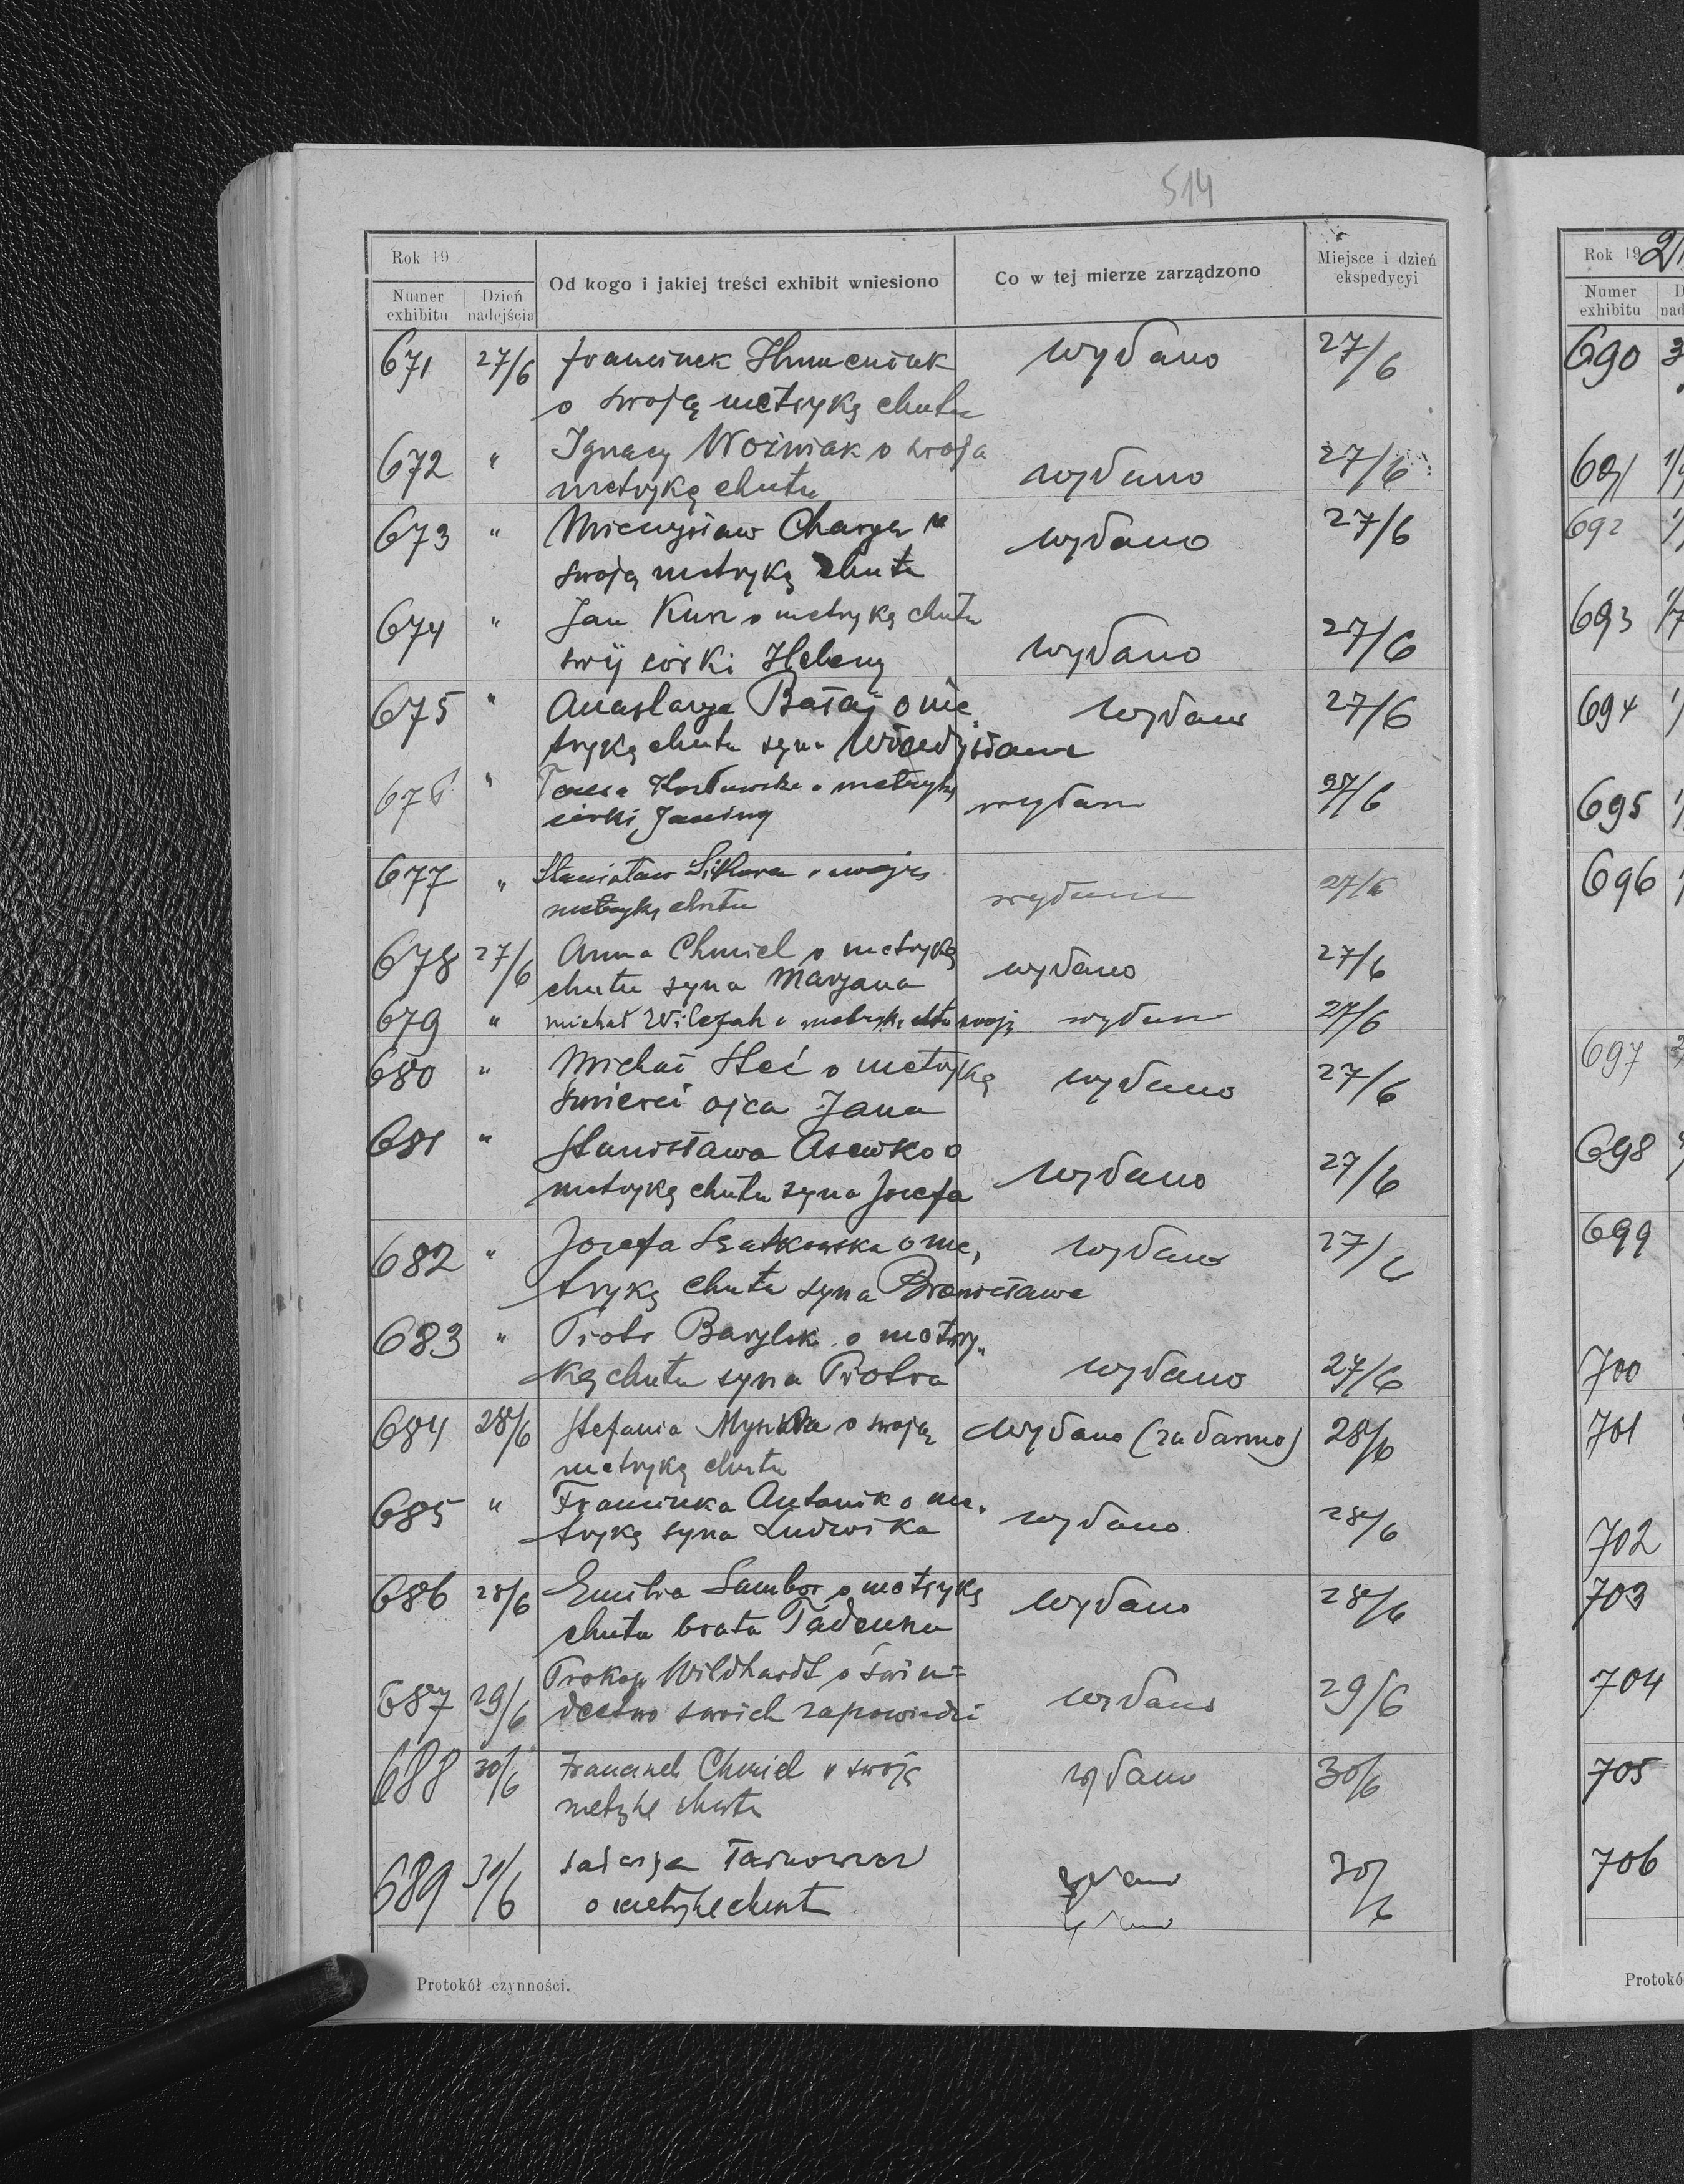 514
Rok 19
Numer exhibitu
Dzień nadejścia
Od kogo i jakiej treści exhibit wniesiono
Co w tej mierze zarządzono
Miejsce i dzień ekspedycyi
671 27/6 wydano 27/6
o swoją metrykę chrztu
672 " Ignacy Woźniak o swoja
metrykę chrztu wydano 27/6
673 " Mieczysław wydano 27/6
swoją metrykę chrztu
674 " Jan o metrykę chrztu
swij córki Heleny wydano 27/6
675 " Bałaj o me„ wydano 27/6
trykę chrztu syna Władysława
676 " o metrykę wydano 27/6
córki Janiny
677 " Stanisław Sikora o swoją
metrykę chrztu wydano 27/6
678 27/6 Anna Chmiel o metrykę
chrztu syna Maryana wydano 27/6
679 " Michał Wilczak o metrykę chrztu swoją wydano 27/6
680 " Michał Steć o metrykę wydano 27/6
śmierci ojca Jana
681 " Stanisława o
metrykę chrztu syna Józefa wydano 27/6
682 " Józefa o me„ wydano 27/6
trykę chrztu syna Bronisława
683 " Piotr o metry„
kę chrztu syna Piotra wydano 27/6
684 28/6 Stefania o swoją wydano (za darmo) 28/6
metrykę chrztu
685 " Franciszka Antonik o me„
trykę syna Ludwika wydano 28/6
686 28/6 Emilia Sambor o metrykę
chrztu brata Tadeusza wydano 28/6
Prokop Wildhardt o świa=
687 29/6 dectwo swoich zapowiedzi wydano 29/6
688 30/6 Franciszek Chmiel o swoję wydano 30/6
metrykę chrztu
689 30/6 30/6
o metrykę chrzt
Protokół czynności.
Rok 19
Numer exhibitu
690
691
692
693
694
695
696
697
698
699
700
701
702
703
704
705
706